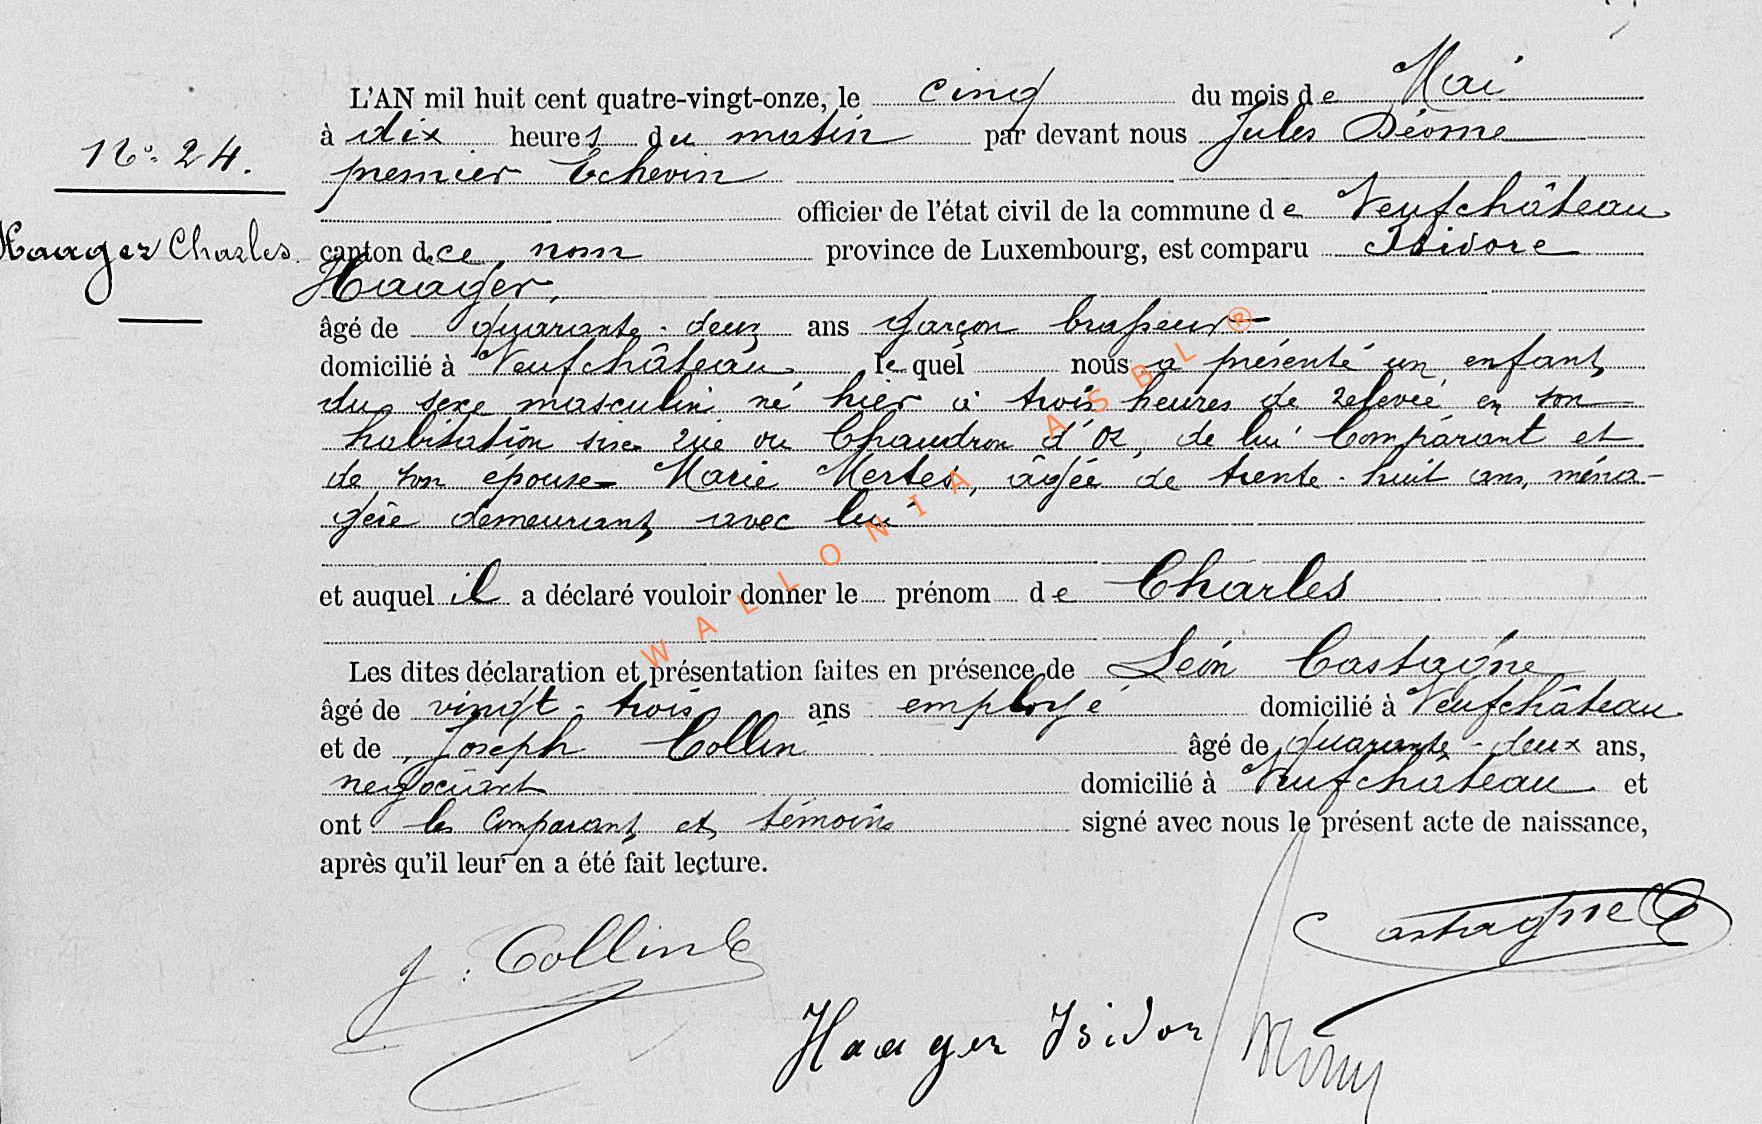 L'AN mil huit cent quatre-vingt-onze, le cinq du mois de Mai
à dix heures du matin par devant nous Jules Déome
N° 24.
premier Echevin
officier de l'état civil de la commune de Neufchâteau
Haager Charles.
canton de ce nom province de Luxembourg, est comparu Isidore
Haager,
âgé de quarante-deux ans garçon brasseur
domicilié à Neufchâteau lequel nous a présenté un enfant
du sexe masculin né hier à trois heures de relevée, en son
habitation sise rue du Chaudron d'or, de lui Comparant et
de son épouse Marie Mertes, âgée de trente-huit ans, ména-
gère demeurant avec lui
et auquel il a déclaré vouloir donner le prénom de Charles
Les dites déclaration et présentation faites en présence de Léon Castagne
âgé de vingt-trois ans employé domicilié à Neufchâteau
et de Joseph Collin âgé de quarante-deux ans,
négociant domicilié à Neufchâteau et
ont les Comparant et témoins signé avec nous le présent acte de naissance,
après qu'il leur en a été fait lecture.
Castagne
J. Collin
Haager Isidor
WALLONIA ASBL ®